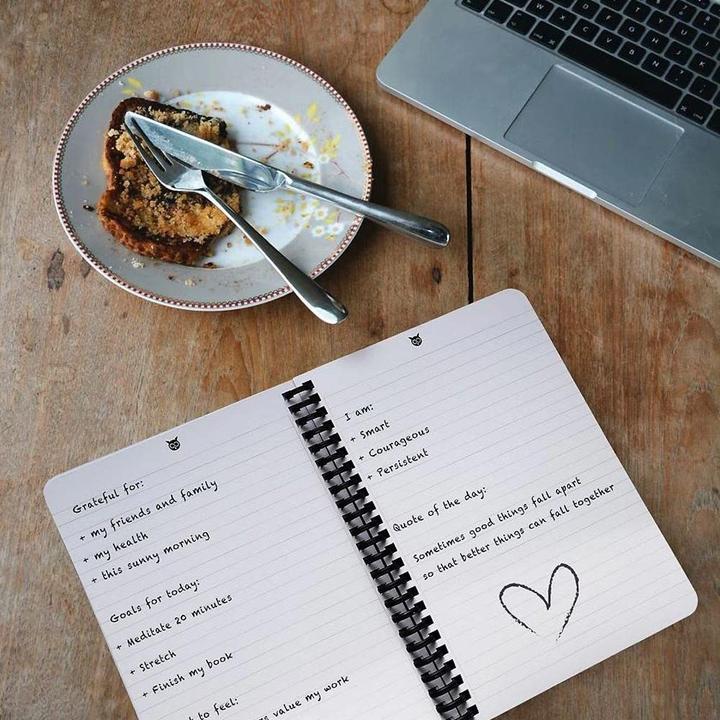 Grateful for:
+ my friends and family
+ my health
+ this sunny morning
Goals for today:
+ Meditate 20 minutes
+ Stretch
+ Finish my book
to feel:
value my work
I am:
+ Smart
+ Courageous
+ Persistent
Quote of the day:
Sometimes good things fall apart
so that better things can fall together